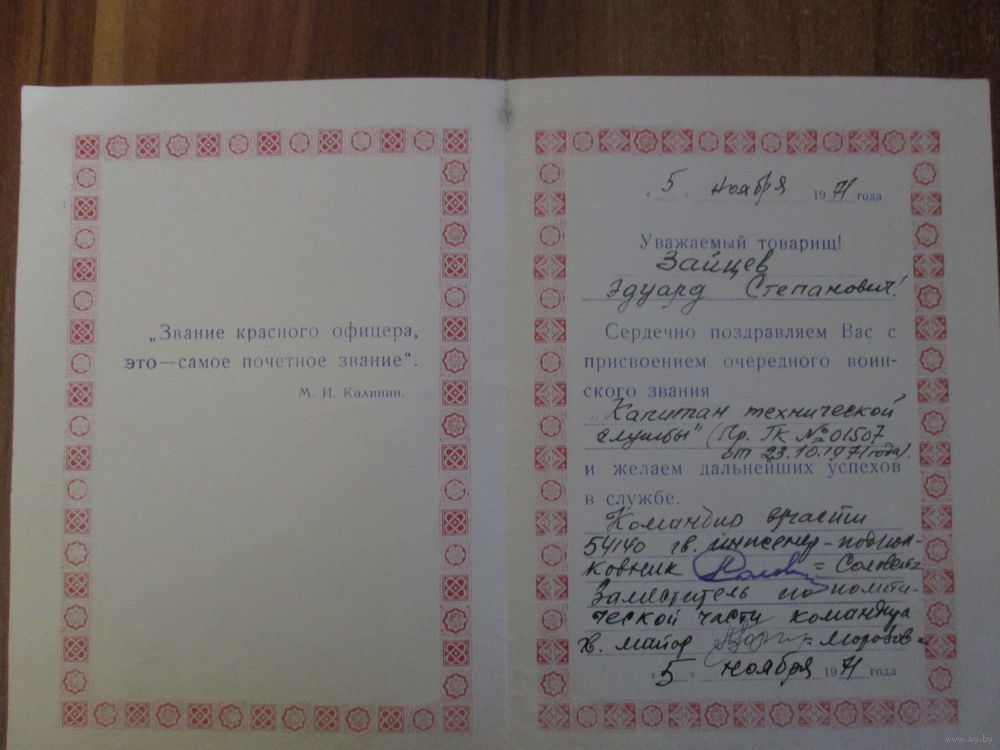 „Звание красного офицера,
это—самое почетное звание“.
М. И. Калинин.
„ 5 “ ноября 1971 года
Уважаемый товарищ!
Зайцев
Эдуард Степанович!
Сердечно поздравляем Вас с
присвоением очередного воин-
ского звания
„Капитан технической
службы" (Пр. ГК № 01507
от 23.10.1971 года).
и желаем дальнейших успехов
в службе.
Командир в/части
54140 гв. инженер-подпол-
ковник =
Заместитель по полити-
ческой части командира
гв. майор =Морозов=
„ 5 “ ноября 1971 года
www.ay.by